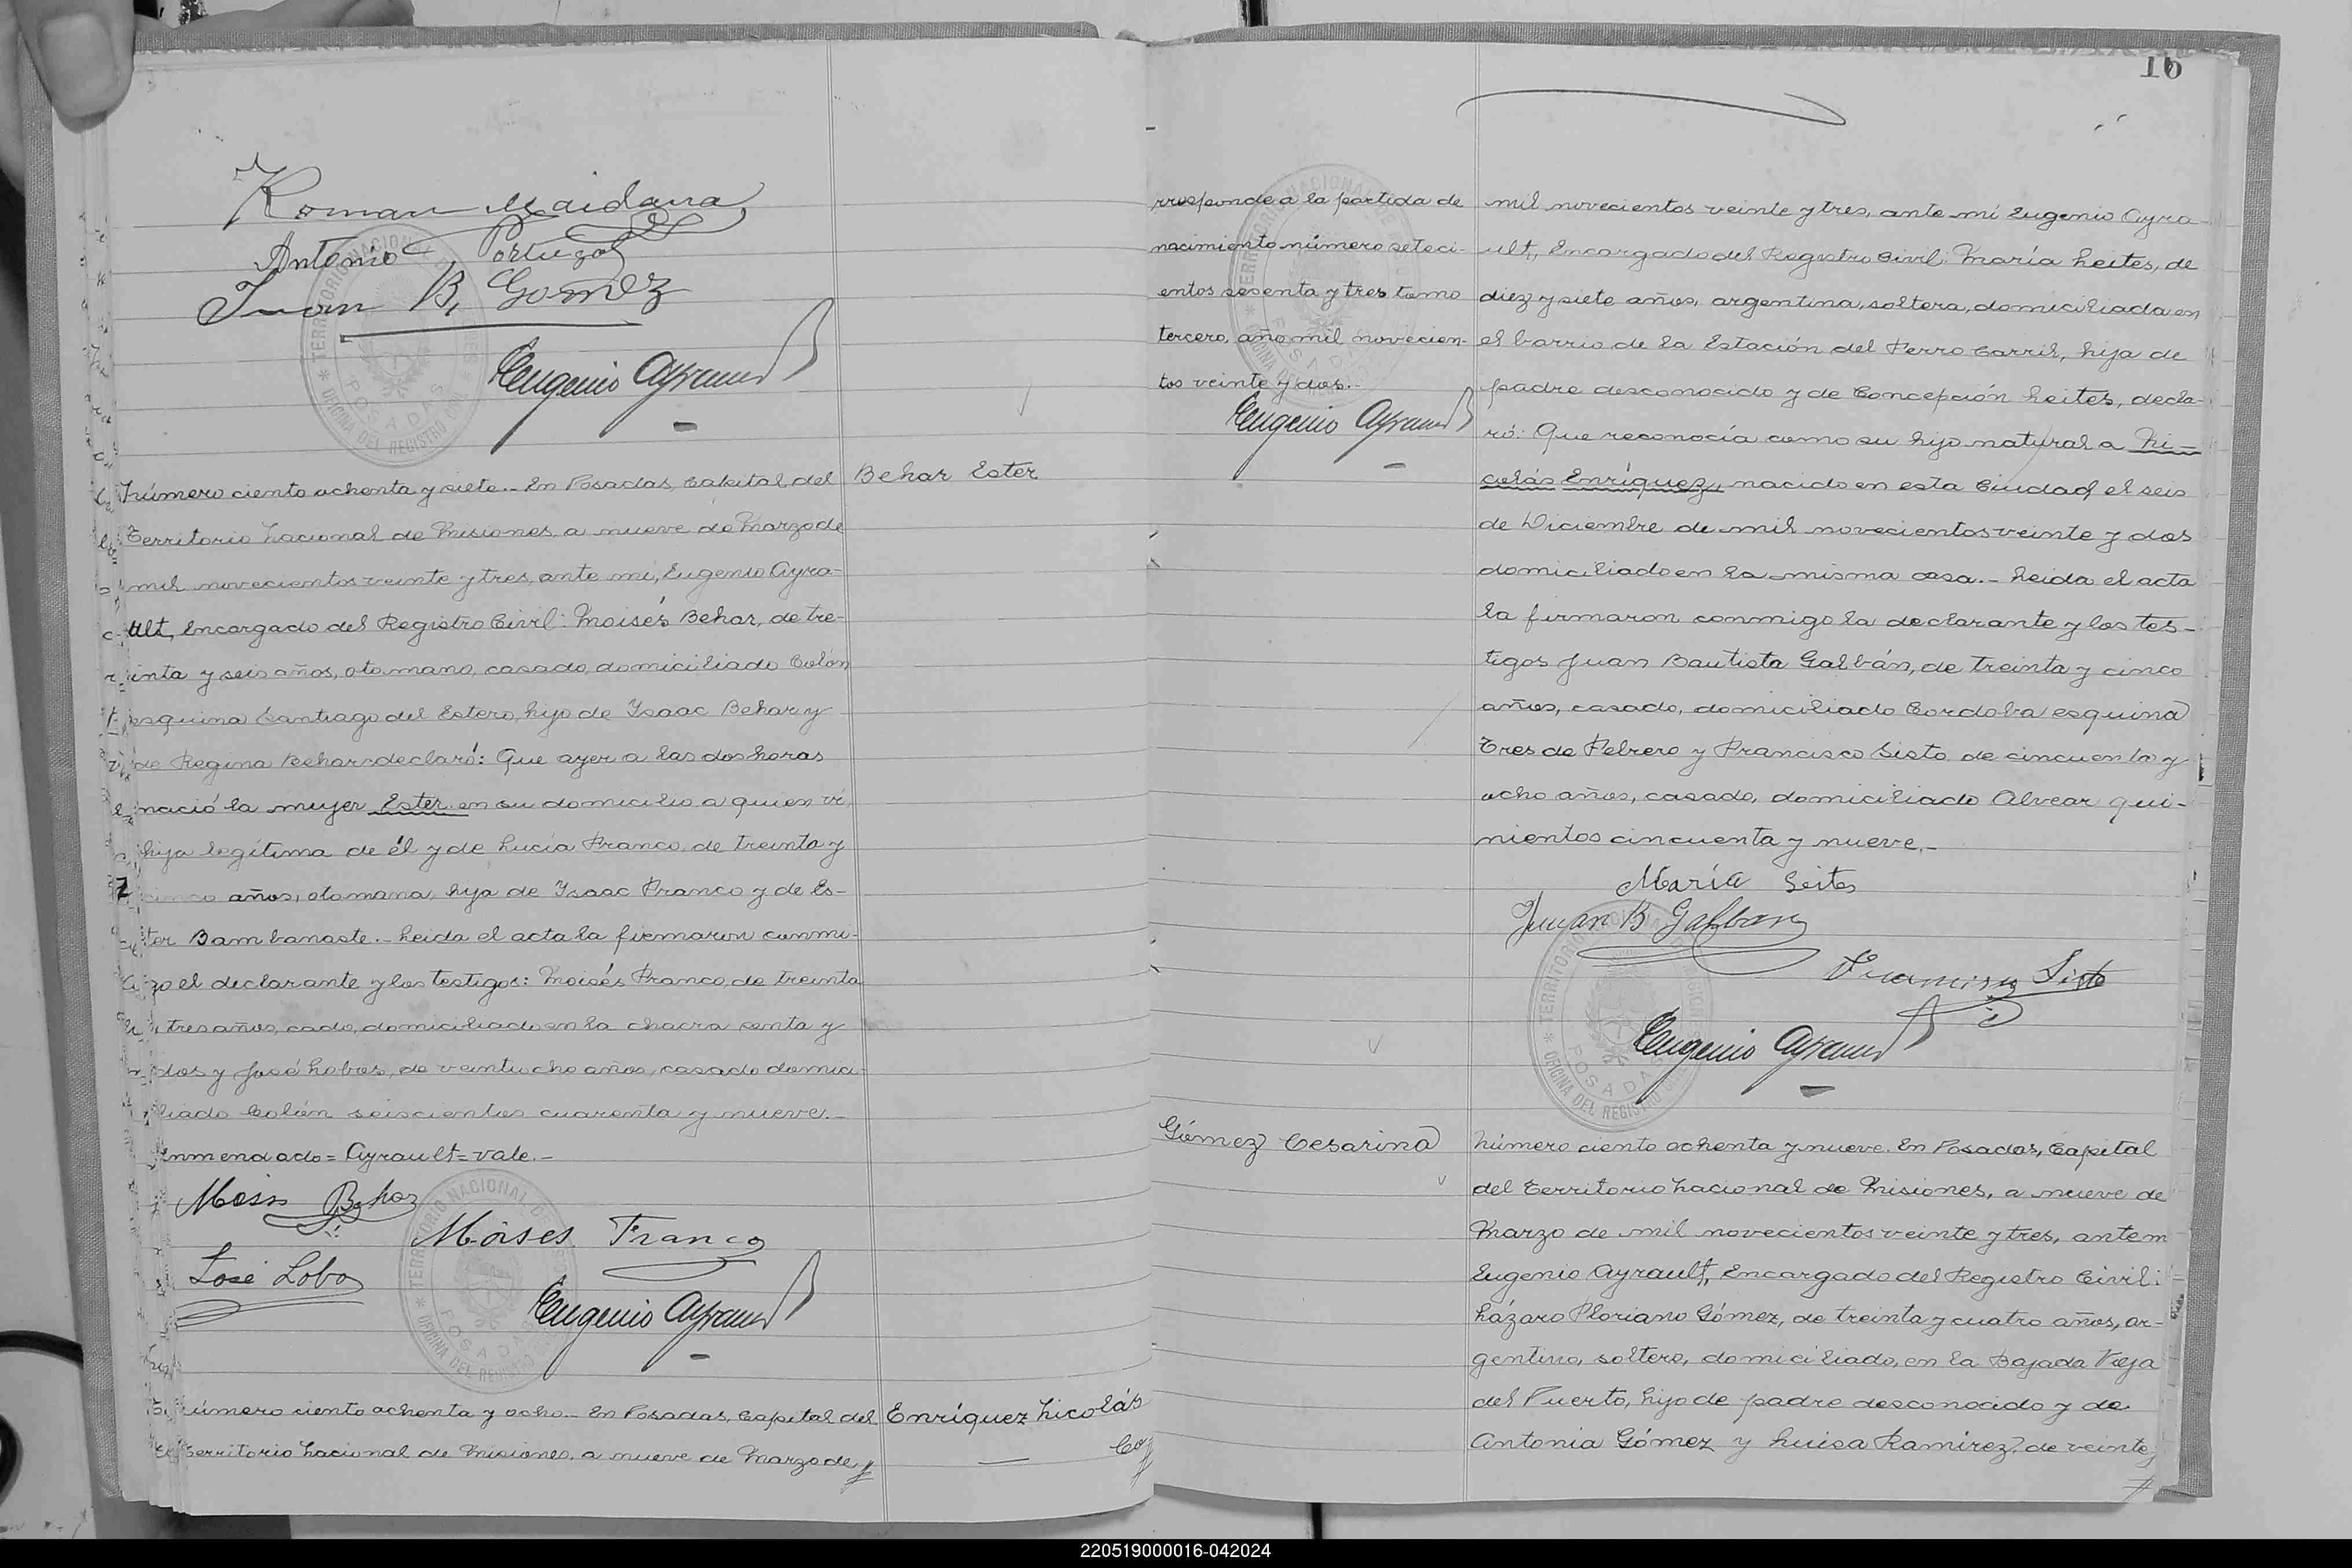 Roman Maidana
Antonio Portugal
Juan B. Gomez
Eugenio Ayrault
Número ciento ochenta y siete.- En Posadas, Capital del
Behar Ester
Territorio Nacional de Misiones, a nueve de Marzo de
mil novecientos veinte y tres, ante mi, Eugenio Ayra-
ult, Encargado del Registro Civil: Moisés Behar, de tre-
inta y seis años, otomano, casado, domiciliado Colón
esquina Santiago del Estero, hijo de Isaac Behar y
de Regina Behar declaró: Que ayer a las dos horas
nació la mujer Ester en su domicilio a quien vi,
hija legítima de él y de Lucía Franco, de treinta y
cinco años, otomana, hija de Isaac Franco y de Es-
ter Bambanaste.- Leida el acta la firmaron conmi-
go el declarante y los testigos: Moisés Franco, de treinta
tres años, cado, domiciliado en la chacra senta y
dos y José Lobos, de veintiocho años, casado domici-
liado Colón seiscientos cuarenta y nueve.-
Enmendado = Ayrault = vale.-
Moises Behar
Moises Franco
José Lobos
Eugenio Ayrault
Número ciento ochenta y ocho.- En Posadas, Capital del
Enríquez Nicolás
Territorio Nacional de Misiones, a nueve de Marzo de
Co
16
rresponde a la partida de
nacimiento número seteci-
entos sesenta y tres tomo
tercero, año mil novecien-
tos veinte y dos.-
Eugenio Ayrault
mil novecientos veinte y tres, ante mí Eugenio Ayra-
ult, Encargado del Registro Civil: María Leites, de
diez y siete años, argentina, soltera, domiciliada en
el barrio de la Estación del Ferro Carril, hija de
padre desconocido y de Concepción Leites, decla-
ró: Que reconocía como su hijo natural a Ni-
colás Enríquez, nacido en esta Ciudad, el seis
de Diciembre de mil novecientos veinte y dos
domiciliado en la misma casa.- Leida el acta
la firmaron conmigo la declarante y los tes-
tigos Juan Bautista Galbán, de treinta y cinco
años, casado, domiciliado Cordoba esquina
Tres de Febrero y Francisco Sisto, de cincuenta y
ocho años, casado, domiciliado Alvear qui-
nientos cincuenta y nueve.-
María Leites
Juan B Galban
Francisco Sisto
Eugenio Ayrault
Gómez Cesarina
Número ciento ochenta y nueve. En Posadas, Capital
del Territorio Nacional de Misiones, a nueve de
Marzo de mil novecientos veinte y tres, ante m
Eugenio Ayrault, Encargado del Registro Civil:
Lázaro Floriano Gómez, de treinta y cuatro años, ar-
gentino, soltero, domiciliado, en la Bajada Vieja
del Puerto, hijo de padre desconocido y de
Antonia Gómez y Luisa Ramírez, de veinte
220519000016-042024